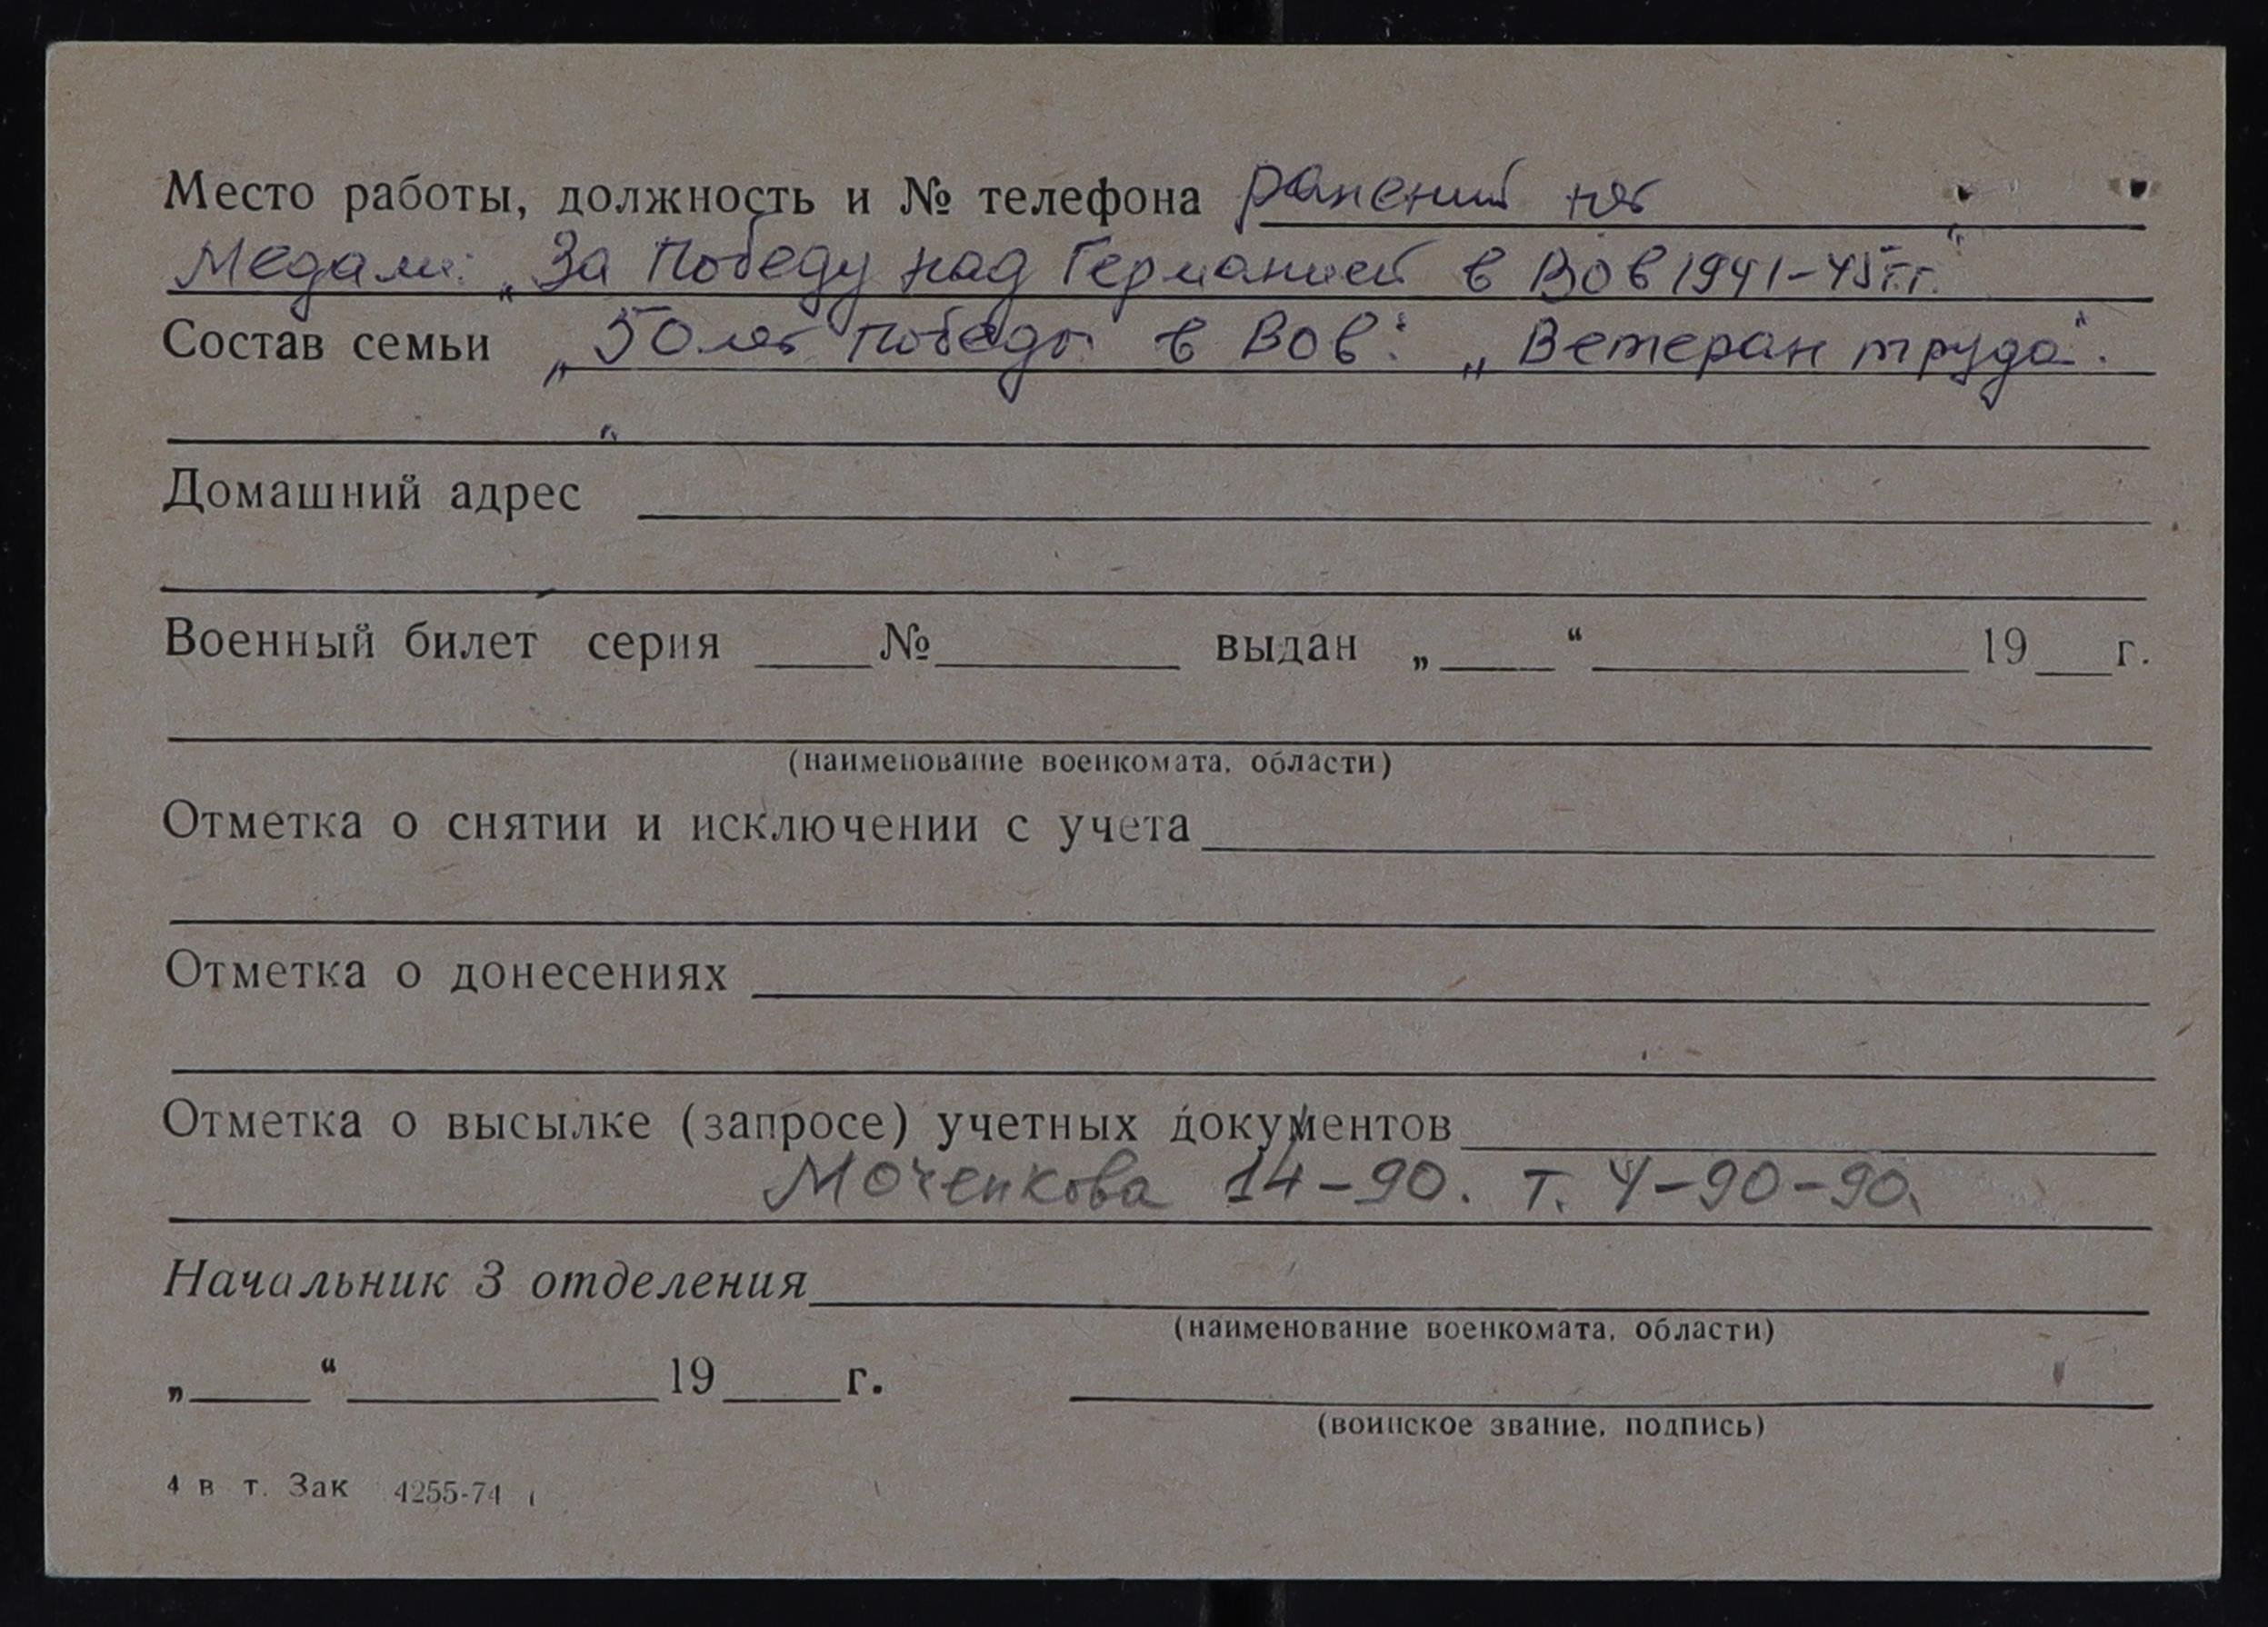 Место работы, должность и № телефона ранений нет
Медали: „За Победу над Германией в Вов 1941-45г.г."
Состав семьи „50 лет Победы в Вов". „Ветеран труда".
Домашний адрес
Военный билет серия № выдан „ “ 19 г.
(наименование военкомата, области)
Отметка о снятии и исключении с учета
Отметка о донесениях
Отметка о высылке (запросе) учетных документов
Моченкова 14-90. т. 4-90-90.
Начальник 3 отделения
(наименование военкомата, области)
„ “ 19 г.
(воинское звание, подпись)
4 в т. Зак 4255-74